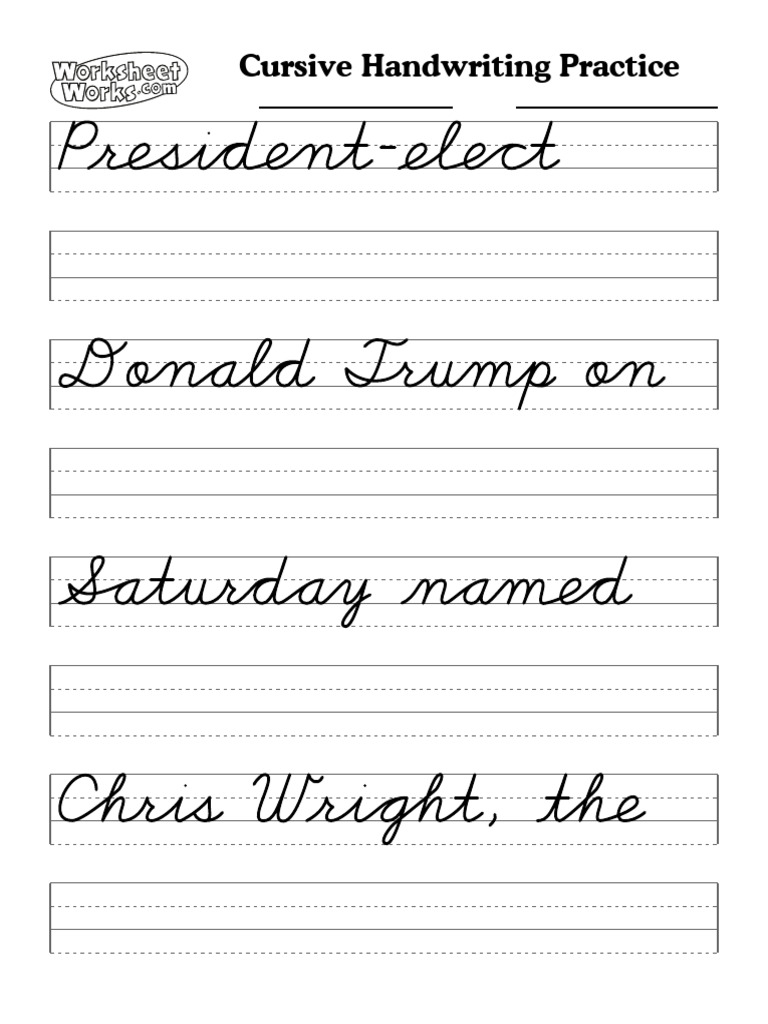 Worksheet
Works.com
Cursive Handwriting Practice
President-elect
Donald Trump on
Saturday named
Chris Wright, the